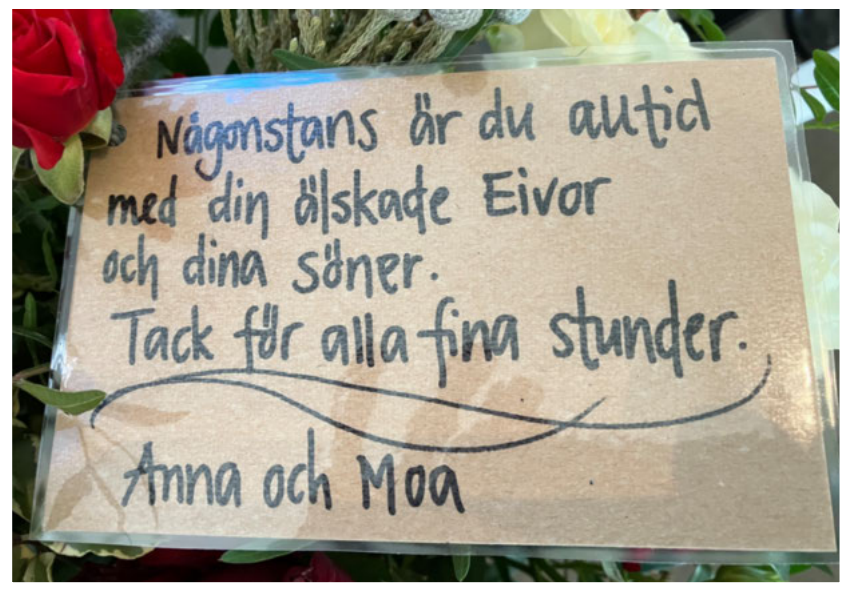 Någonstans är du alltid
med din älskade Eivor
och dina söner.
Tack för alla fina stunder.
Anna och Moa